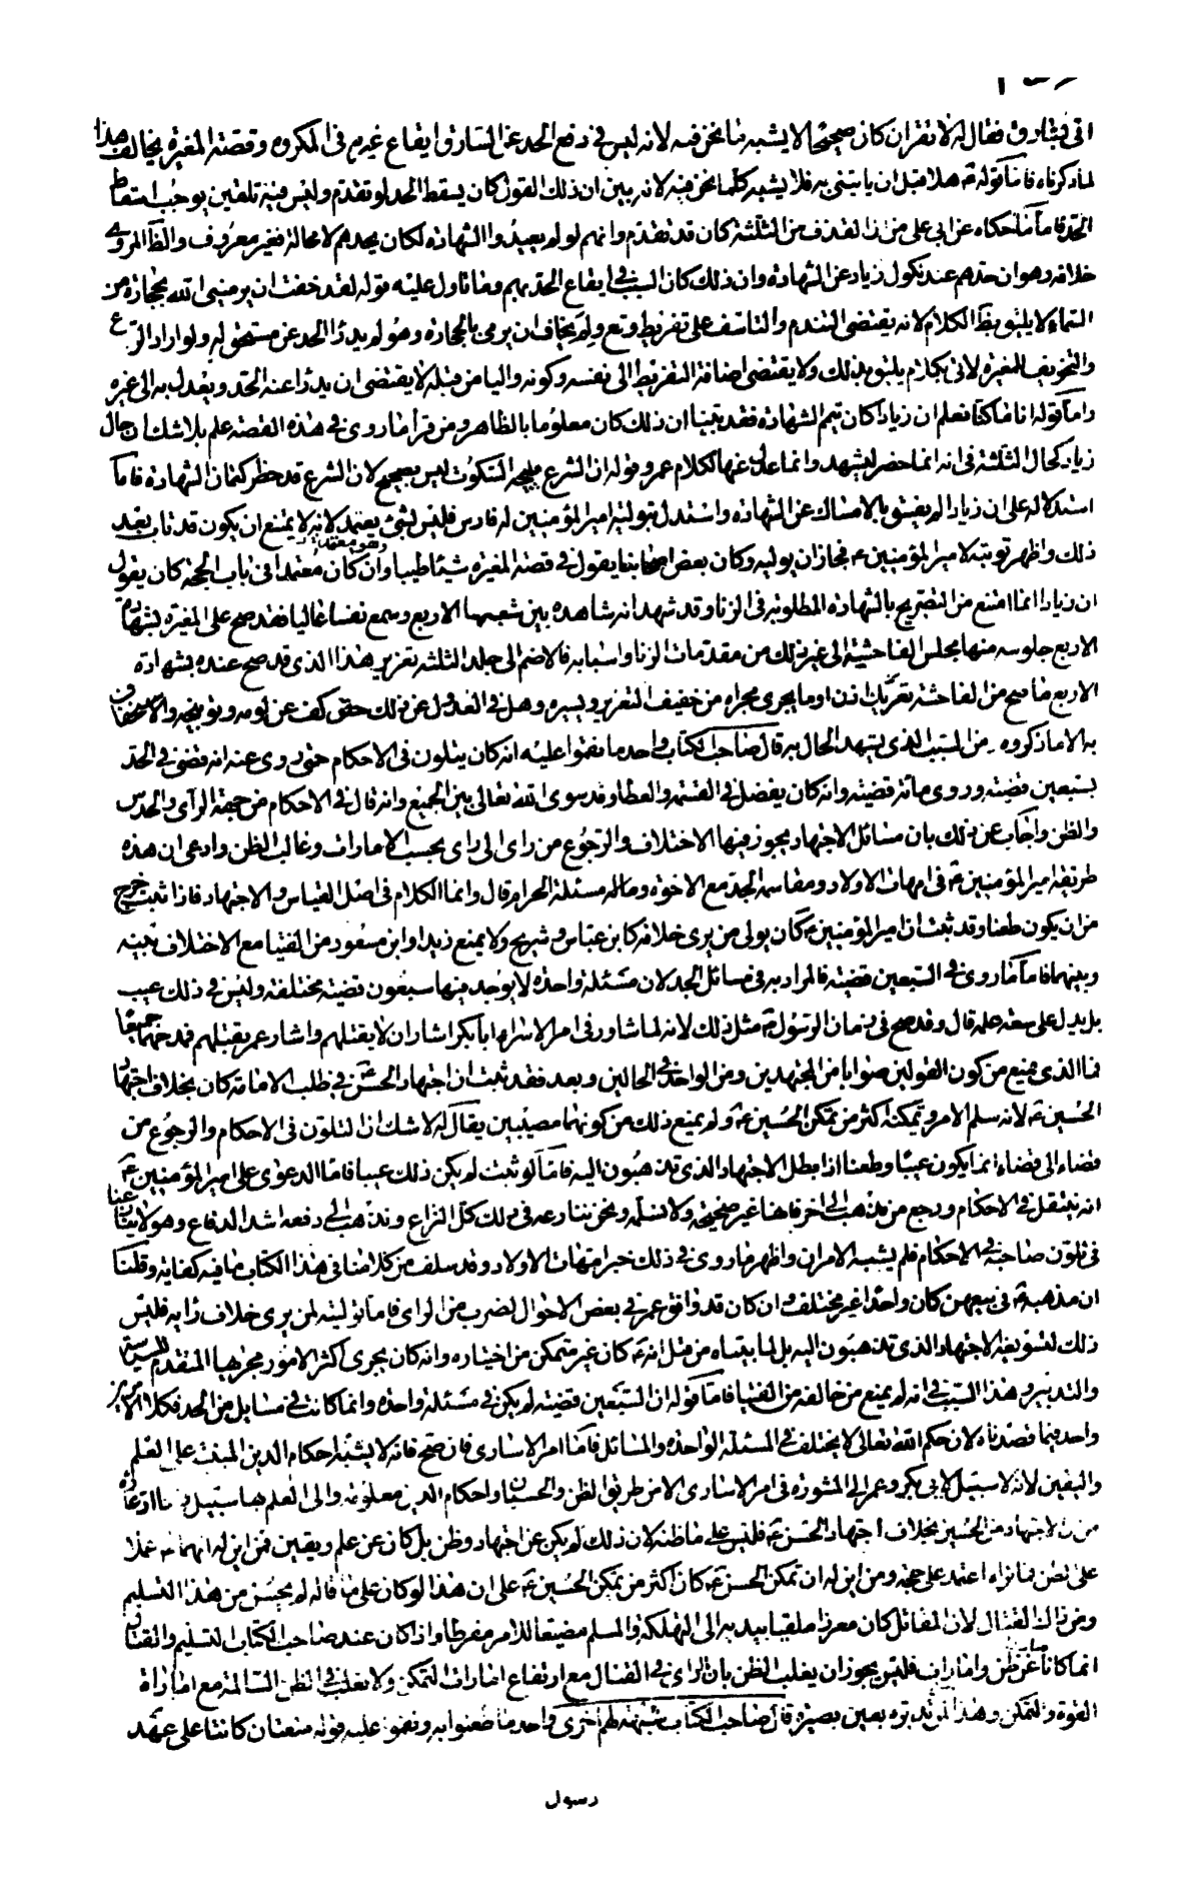 اتى بسارق فقال له لا تقر ان كان صحيحا لا يشبه ما نحن فيه لانه ليس في دفع الحد عن السارق ايقاع غيره في المكروه وقصة المغيرة يخالف هذا
لما ذكرناه فاما قوله ع هلا قبل ان ياتيني به فلا يشبه كلما نحن فيه لانه بين ان ذلك القول كان يسقط الحد لو تقدم وليس فيه تلقين يوجب اسقاط
الحد فاما ما حكاه عن ابي علي من ان القذف من الثلثة كان قد تقدم وانهم لو لم يعيدوا الشهادة لكان يحدهم لا محالة فغير معروف والظاهر المروى
خلافه وهو ان حدهم عند نكول زياد عن الشهادة وان ذلك كان السبب في ايقاع الحد بهم وما تاول عليه قوله لقد خفت ان يرميني الله بحجارة من
السماء لا يليق بظاهر الكلام لانه يقتضى التندم والتاسف على تفريط وقع ولم يخاف ان يرمى بالحجارة وهو لم يدرا الحد عن مستحق له ولو اراد الردع
والتخويف للمغيرة لاتى بكلام يليق بذلك ولا يقتضى اضافة التفريط الى نفسه وكونه واليا من قبله لا يقتضى ان يدرا عنه الحد ويعدل به الى غيره
واما قوله انا ما كنا نعلم ان زيادا كان يتم الشهادة فقد بينا ان ذلك كان معلوما بالظاهر ومن قرا ما روى في هذه القصة علم بلا شك ان حال
زياد كحال الثلثة في انه انما حضر ليشهد وانما عدل عنها لكلام عمر وقوله ان الشرع يبيح السكوت ليس بصحيح لان الشرع قد حظر كتمان الشهادة فاما
استدلاله على ان زيادا لم يفسق بالامساك عن الشهادة واستدل بتولية امير المؤمنين له فارس فليس بشيء يعتمد لانه لا يمتنع ان يكون قد تاب بعد
ذلك واظهر توبته لامير المؤمنين ع فجاز ان يوليه وكان بعض اصحابنا يقول في قصة المغيرة شيئا طيبا وان كان معتمدا في باب الحجة كان يقول
ان زيادا انما امتنع من التصريح بالشهادة المطلوبة في الزنا وقد شهد انه شاهده بين شعبها الاربع وسمع نفسا عاليا فقد صح على المغيرة بشهادة
الاربع جلوسه منها مجلس الفاحشة الى غير ذلك من مقدمات الزنا واسبابه فالا ضم الى جلد الثلثة تعزير هذا الذى قد صح عنده بشهادة
الاربع ما صح من الفاحشة تعريك اذن او ما يجرى مجراه من خفيف التعزير ويسيره وهل في العدول عن ذلك حتى كف عن لومه وتوبيخه والاستخفاف
به الا ما ذكروه من السبب الذى يشهد الحال به قال صاحب الكتاب واحد ما نقموا عليه انه كان يتلون في الاحكام حتى روى عنه انه قضى في الحد
بسبعين قضية وروى مائة قضية وانه كان يفضل في القسمة والعطاء وقد سوى الله تعالى بين الجميع وانه قال في الاحكام من جهة الراى والحدس
والظن واجاب عن ذلك بان مسائل الاجتهاد يجوز فيها الاختلاف والرجوع من راى الى راى بحسب الامارات وغالب الظن وادعى ان هذه
طريقة امير المؤمنين ع في امهات الاولاد ومقاسمة الجد مع الاخوة ومالمه مسئلة الحرام قال وانما الكلام في اصل القياس والاجتهاد فاذا ثبت خرج
من ان يكون طعنا وقد ثبت ان امير المؤمنين ع كان يولى من يرى خلافه كابن عباس وشريح ولا يمنع زيدا وابن مسعود من الفتيا مع الاختلاف بينه
وبينهما فاما ما روى في السبعين قضية فالمراد به في مسائل الجد لان مسئلة واحدة لا يوجد فيها سبعون قضية مختلفة وليس في ذلك عيب
بل يدل على سعة علمه قال وقد صح في زمان الرسول ع مثل ذلك لانه لما شاور في امر الاسراء ابا بكر اشار ان لا يقتلهم واشار عمر بقتلهم فمدحهما جميعا
فما الذى يمنع من كون القولين صوابا من المجتهدين ومن الواحد في الحالين وبعد فقد ثبت ان اجتهاد الحسن في طلب الامامة كان بخلاف اجتهاد
الحسين ع لانه سلم الامر وتمكنه اكثر من تمكن الحسين ع ولم يمنع ذلك من كونهما مصيبين يقال له لا شك ان التلون في الاحكام والرجوع من
قضاء الى قضاء انما يكون عيبا وطعنا اذا ابطل الاجتهاد الذى تذهبون اليه فاما لو ثبت لم يكن ذلك عيبا فاما الدعوى على امير المؤمنين ع
انه تنقل في الاحكام ورجع من مذهب الى اخر فانها غير صحيحة ولا نسلمه ونحن ننازعه في ذلك كل النزاع ونذهب الى دفعه اشد الدفاع وهو لا ينازعنا
في تلون صاحبه في الاحكام فلم يشبه الامران واظهر ما روى في ذلك خبر امهات الاولاد وقد سلف من كلامنا في هذا الكتاب ما فيه كفاية وقلنا
ان مذهبه ع في بيعهن كان واحدا غير مختلف وان كان قد وافق عمر في بعض الاحوال لضرب من الراى فاما توليته لمن يرى خلاف رايه فليس
ذلك لتسويغه الاجتهاد الذى تذهبون اليه بل لما بيناه من قبل انه ع كان غير متمكن من اختياره وانه كان يجرى اكثر الامور مجراها المتقدم للسياسة
والتدبير وهذا السبب في انه لم يمنع من خالفه من الفتيا فاما قوله ان السبعين قضية لم يكن في مسئلة واحدة وانما كانت في مسايل من الجد فكلا الامرين
واحد فيما قصدناه لان حكم الله تعالى لا يختلف في المسئلة الواحدة والمسائل فاما امر الاسارى فان صح فانه لا يشبه احكام الدين المبنية على العلم
واليقين لانه لا سبيل لابي بكر وعمر الى المشورة في امر الاسارى الا من طريق الظن والحسبان واحكام الدين معلومة والى العلم بها سبيل وما ادعاه
من الاجتهاد من الحسين بخلاف اجتهاد الحسن ع فليس على ما ظنه لان ذلك لم يكن عن اجتهاد وظن بل كان عن علم ويقين فمن اين له انهما ع عملا
على الظن فما نراه اعتمد على حجة ومن اين له ان تمكن الحسن ع كان اكثر من تمكن الحسين ع على ان هذا لو كان على ما قاله لم يحسن من هذا التسليم
ومن ذاك القتال لان المقاتل كان مغررا ملقيا بيديه الى التهلكة والمسلم مضيعا للامر مفرطا واذا كان عند صاحب الكتاب التسليم والقتال
انما كانا عن ظن وامارات فليس يجوز ان يغلب الظن بان الراى في القتال مع ارتفاع امارات التمكن ولا يغلب في الظن المسالمة مع امارة
القوة والتمكن وهذا لمن تدبره بعين بصيرة قال صاحب الكتاب شبهة لهم اخرى واحد ما طعنوا به ونقموا عليه قوله متعتان كانتا على عهد
رسول